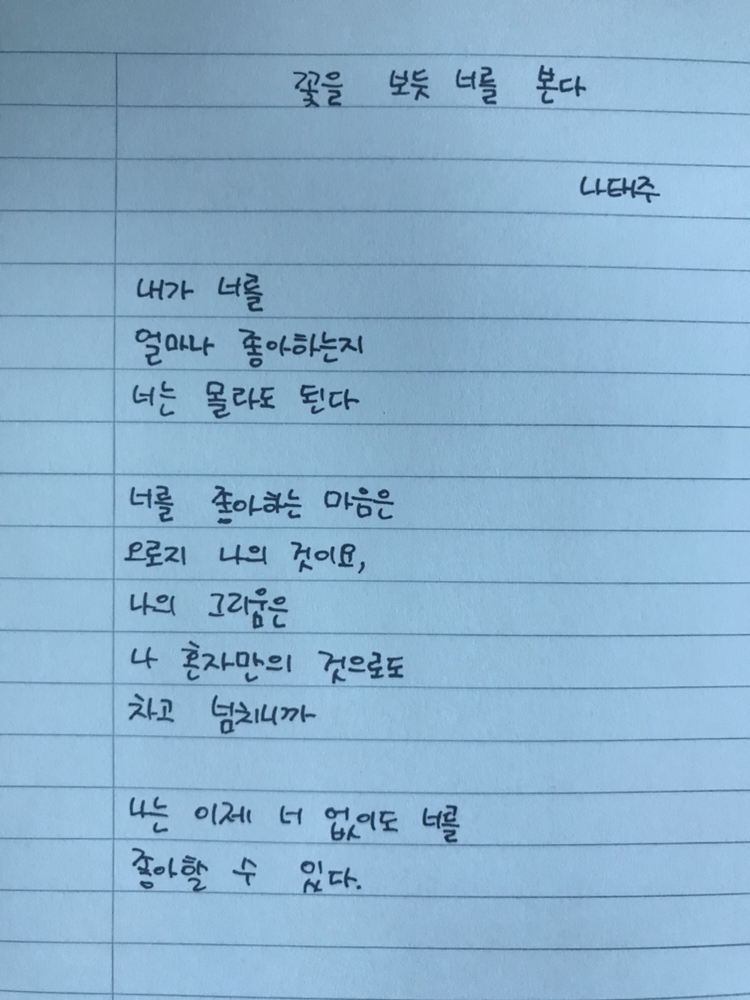 꽃을 보듯 너를 본다
나태주
내가 너를
얼마나 좋아하는지
너는 몰라도 된다
너를 좋아하는 마음은
오로지 나의 것이요,
나의 그리움은
나 혼자만의 것으로도
차고 넘치니까
나는 이제 너 없이도 너를
좋아할 수 있다.